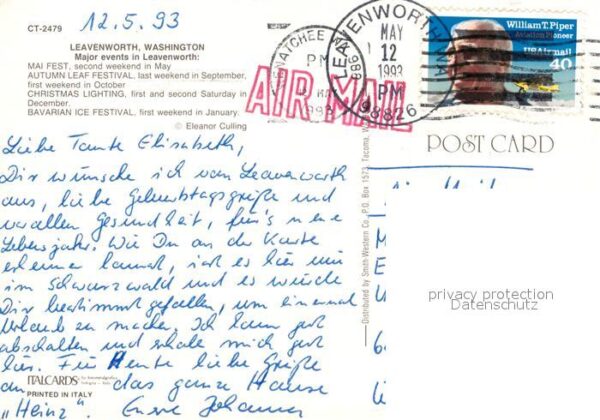 12.5.93
CT-2479
LEAVENWORTH, WASHINGTON
Major events in Leavenworth:
MAI FEST, second weekend in May
AUTUMN LEAF FESTIVAL, last weekend in September,
first weekend in October
CHRISTMAS LIGHTING, first and second Saturday in
December.
BAVARIAN ICE FESTIVAL, first weekend in January.
© Eleanor Culling
WENATCHEE WA 988
PM
1993
LEAVENWORTH WA
MAY
12
1993
PM
98826
AIR MAIL
William T. Piper
Aviation Pioneer
US Airmail
40
POST CARD
Liebe Tante Elisabeth,
Dir wünsche ich von Leavenworth
aus, liebe Geburtstagsgrüße und
vor allen Gesundheit, für's neue
Lebensjahr. Wie Du an der Karte
erkennen kannst, ist es hier wie
im Schwarzwald und es würde
Dir bestimmt gefallen, um einmal
Urlaub zu machen. Ich kann gut
abschalten und erhole mich gut
hier. Für Heute liebe Grüße
an das ganze Hause
"Heinz". Eure Johanna
Distributed by Smith-Western Co., P.O. Box 1573, Tacoma,
privacy protection
Datenschutz
ITALCARDS
PRINTED IN ITALY